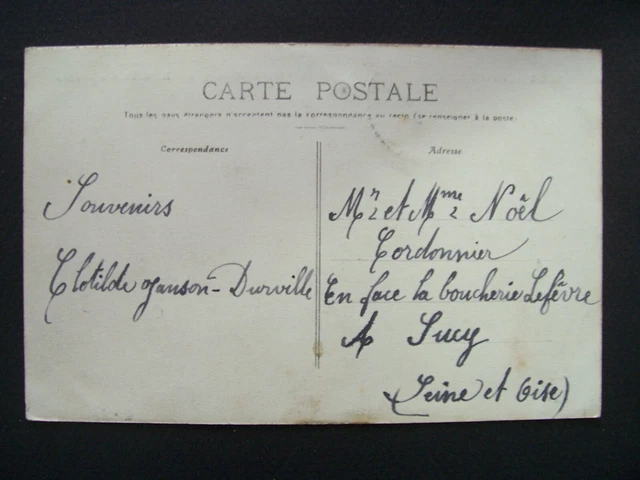 CARTE POSTALE
Tous les pays étrangers n'acceptent pas la correspondance au recto (se renseigner à la poste)
Correspondance
Adresse
Souvenirs
Clotilde Janson-Durville
Mr et Mme Noël
Cordonnier
En face la boucherie Lefêvre
A Sucy
(Seine et Oise)